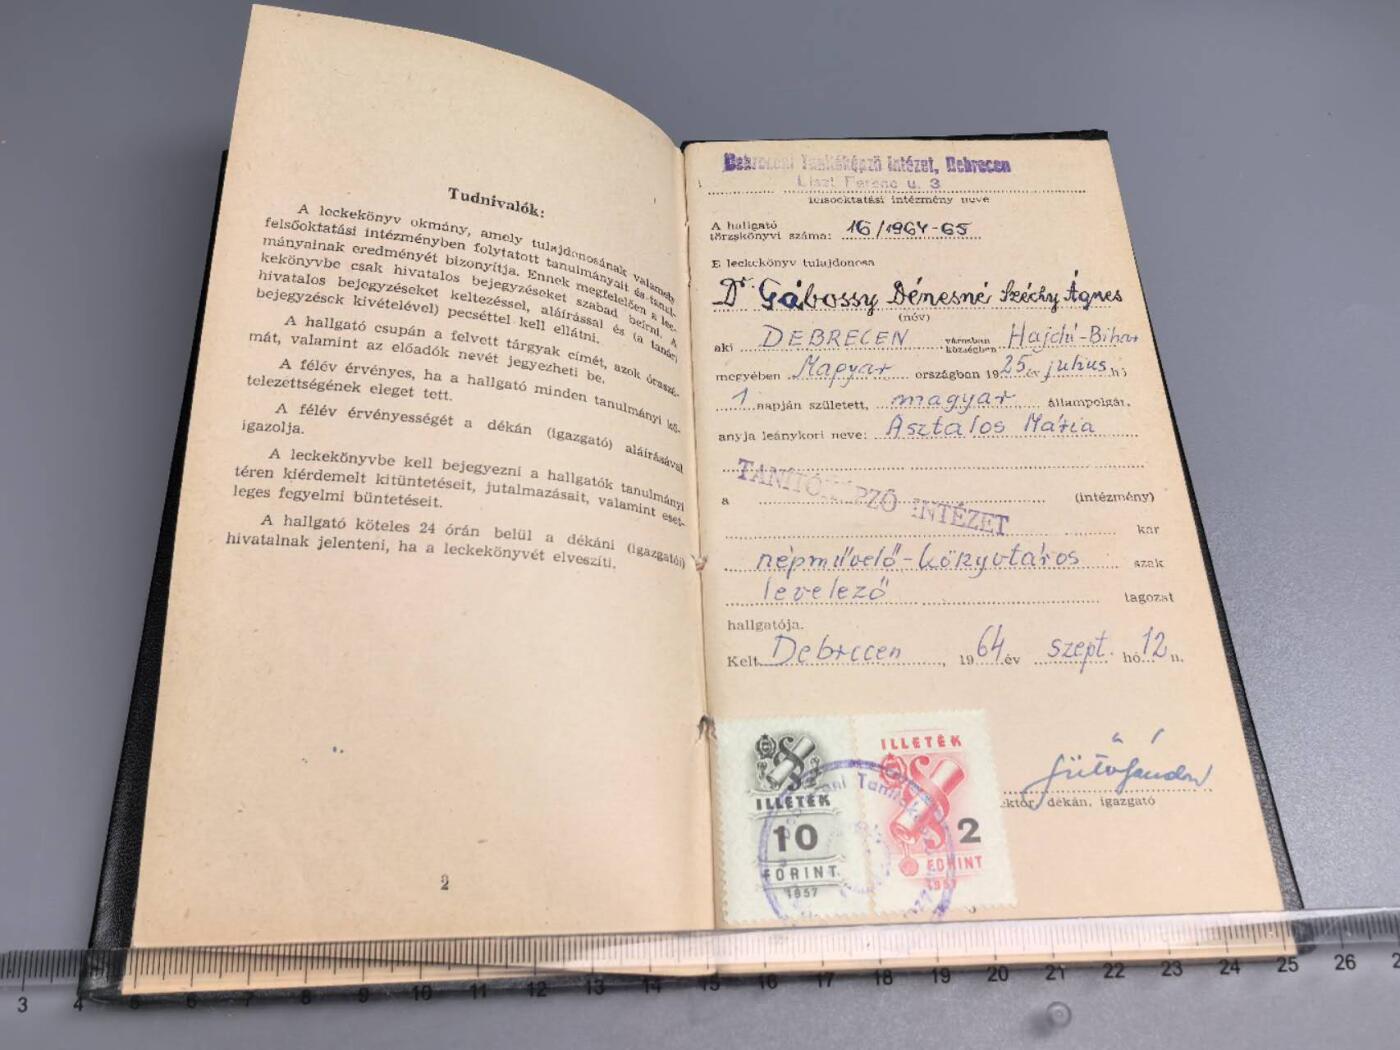 Tudnivalók:
A leckekönyv okmány, amely tulajdonosának valamely
felsőoktatási intézményben folytatott tanulmányait és tanul-
mányainak eredményét bizonyítja. Ennek megfelelően a lec-
kekönyvbe csak hivatalos bejegyzéseket szabad beírni. A
hivatalos bejegyzéseket keltezéssel, aláírással és (a tanári
bejegyzések kivételével) pecséttel kell ellátni.
A hallgató csupán a felvett tárgyak címét, azok óraszá-
mát, valamint az előadók nevét jegyezheti be.
A félév érvényes, ha a hallgató minden tanulmányi kö-
telezettségének eleget tett.
A félév érvényességét a dékán (igazgató) aláírásával
igazolja.
A leckekönyvbe kell bejegyezni a hallgatók tanulmányi
téren kiérdemelt kitüntetéseit, jutalmazásait, valamint eset-
leges fegyelmi büntetéseit.
A hallgató köteles 24 órán belül a dékáni (igazgatói)
hivatalnak jelenteni, ha a leckekönyvét elveszíti.
2
Debreceni Tanítóképző Intézet, Debrecen
Liszt Ferenc u. 3
felsőoktatási intézmény neve
A hallgató
törzskönyvi száma: 16/1964-65
E leckekönyv tulajdonosa
Dr Gábossy Dénesné Széchy Ágnes
(név)
aki DEBRECEN városban községben Hajdú-Bihar
megyében Magyar országban 1925 év július hó
1 napján született, magyar állampolgár,
anyja leánykori neve: Asztalos Mária
TANÍTÓKÉPZŐ INTÉZET
a (intézmény)
kar
népművelő-könyvtáros szak
levelező tagozat
hallgatója.
Kelt Debrecen, 1964 év szept. hó 12 n.
ILLETÉK
10
FORINT
1957
ILLETÉK
2
FORINT
1957
dékán, igazgató
3 4 8 9 10 11 12 13 14 15 16 17 18 19 20 21 22 23 24 25 26 2